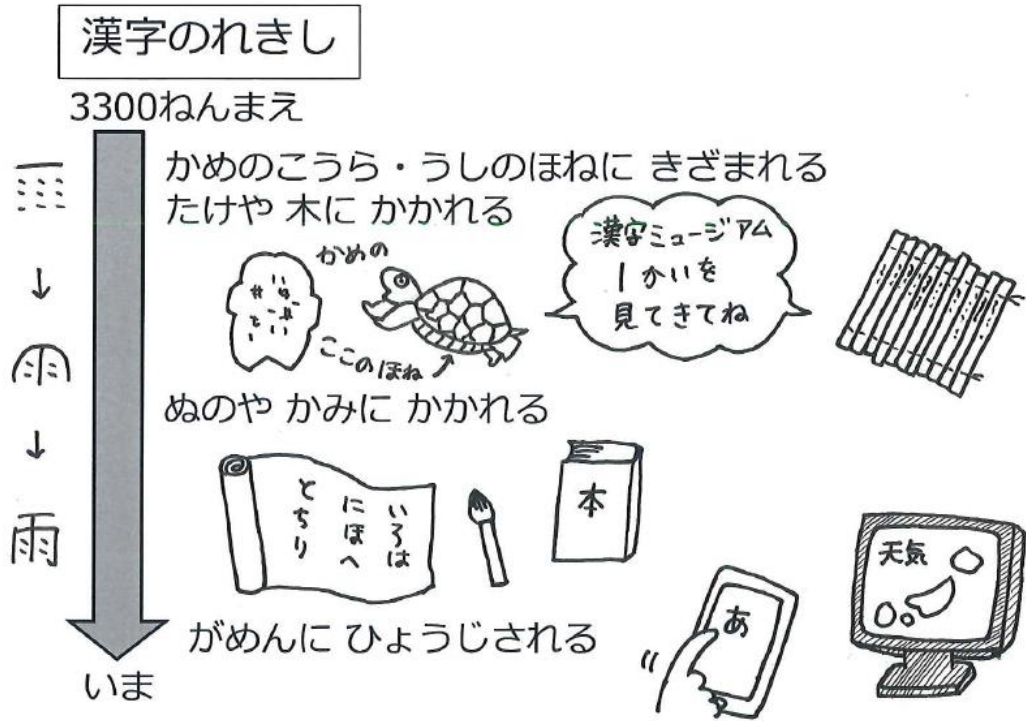 漢字のれきし
3300ねんまえ
かめのこうら・うしのほねに きざまれる
たけや 木に かかれる
かめの
ここのほね
漢字ミュージアム
1かいを
見てきてね
ぬのや かみに かかれる
雨
いろは
にほへ
とちり
本
天気
あ
がめんに ひょうじされる
いま